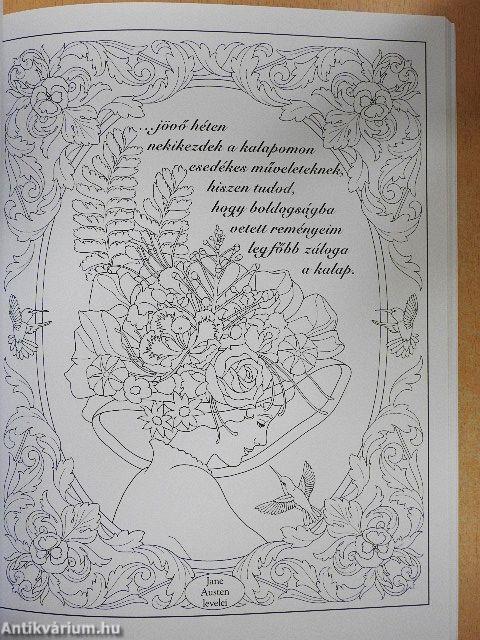 ...jövő héten
nekikezdek a kalapomon
esedékes műveleteknek,
hiszen tudod,
hogy boldogságba
vetett reményeim
legfőbb záloga
a kalap.
Jane
Austen
levelei
Antikvárium.hu